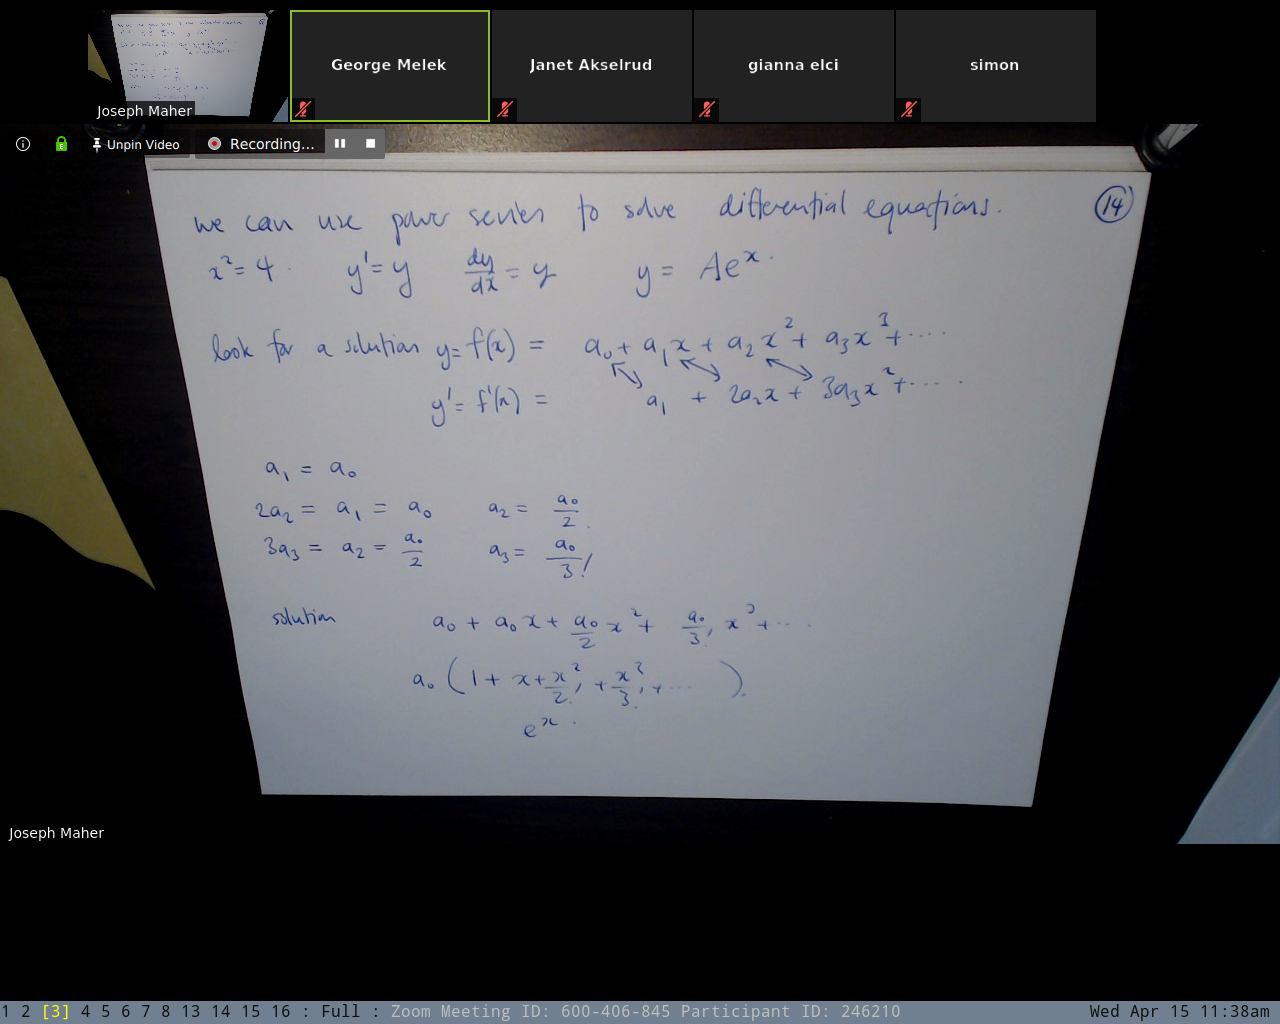 Joseph Maher
George Melek
Janet Akselrud
gianna elci
simon
Unpin Video
Recording...
we can use power series to solve differential equations. 14
x² = 4. y' = y dy/dx = y y = Ae^x.
look for a solution y = f(x) = a₀ + a₁x + a₂x² + a₃x³ + ....
y' = f'(x) = a₁ + 2a₂x + 3a₃x² + ....
a₁ = a₀
2a₂ = a₁ = a₀ a₂ = a₀/2.
3a₃ = a₂ = a₀/2 a₃ = a₀/3!
solution a₀ + a₀x + a₀/2 x² + a₀/3! x³ + ....
a₀ (1 + x + x²/2! + x³/3! + .... ).
e^x.
Joseph Maher
1 2 [3] 4 5 6 7 8 13 14 15 16 : Full : Zoom Meeting ID: 600-406-845 Participant ID: 246210 Wed Apr 15 11:38am